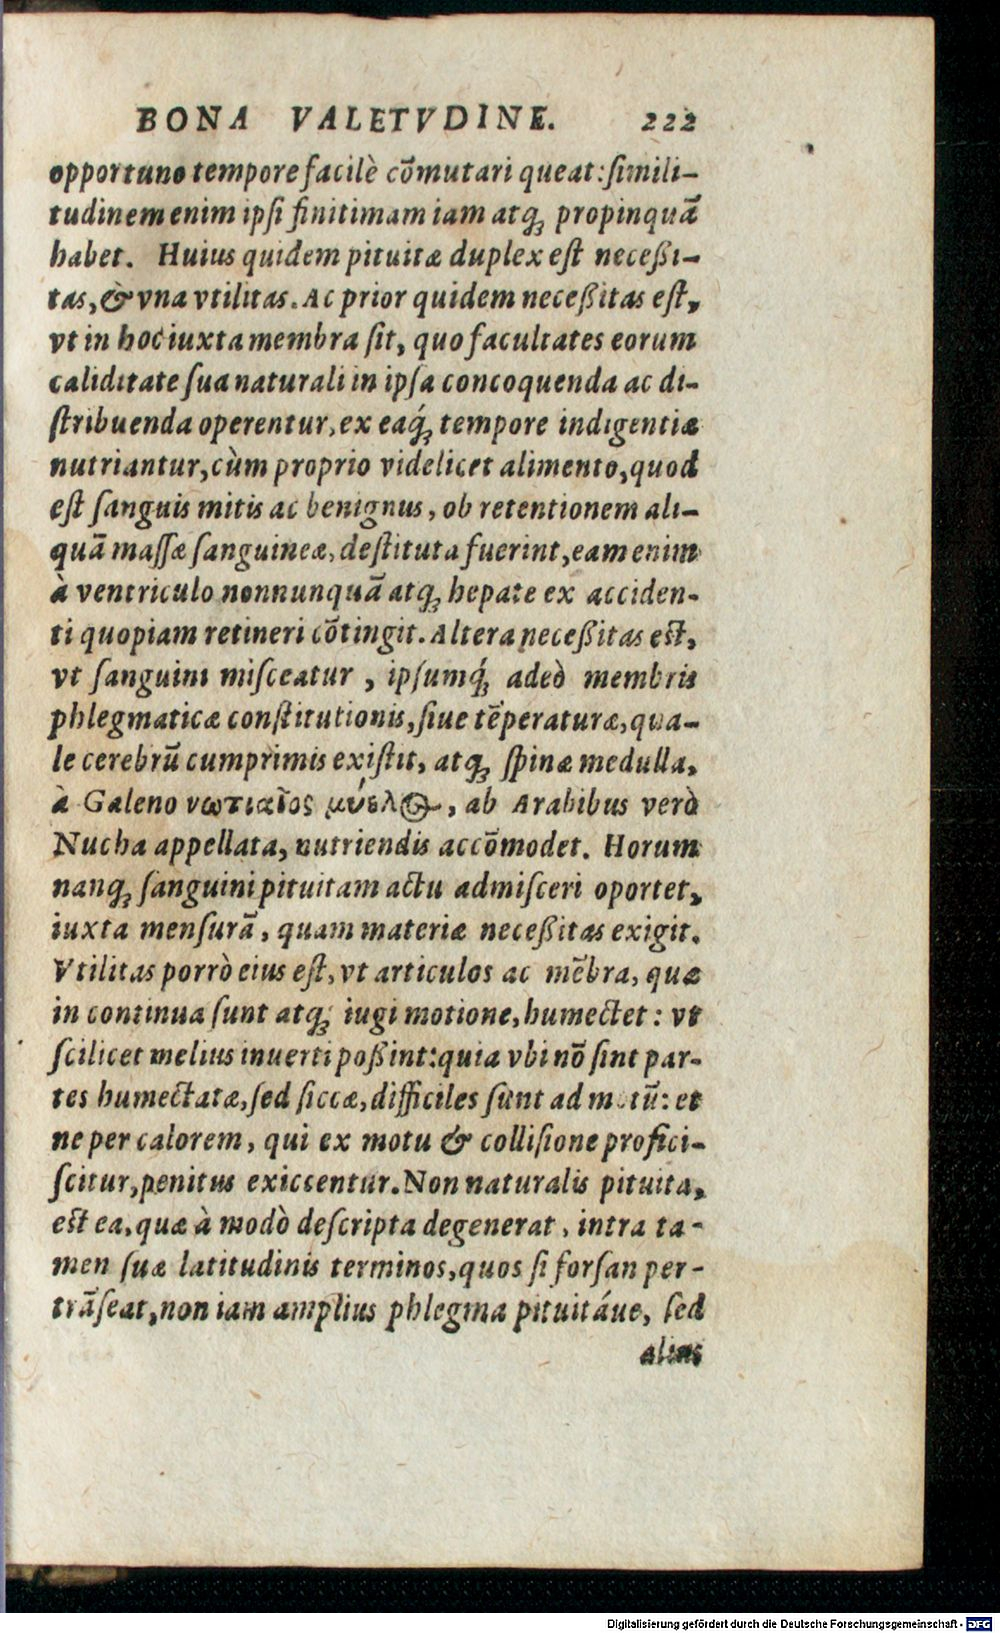 BONA VALETVDINE. 222
opportuno tempore facilè cōmutari queat: ſimili-
tudinem enim ipſi finitimam iam atq; propinquā
habet. Huius quidem pituitæ duplex eſt neceßi-
tas, & vna vtilitas. Ac prior quidem neceßitas eſt,
vt in hoc iuxta membra ſit, quo facultates eorum
caliditate ſua naturali in ipſa concoquenda ac di-
ſtribuenda operentur, ex eaq́; tempore indigentiæ
nutriantur, cùm proprio videlicet alimento, quod
eſt ſanguis mitis ac benignus, ob retentionem ali-
quā maſſæ ſanguineæ, deſtituta fuerint, eam enim
à ventriculo nonnunquā atq; hepate ex acciden-
ti quopiam retineri cōtingit. Altera neceßitas eſt,
vt ſanguini miſceatur, ipſumq́; adeò membris
phlegmaticæ conſtitutionis, ſiue tēperaturæ, qua-
le cerebrū cumprimis exiſtit, atq; ſpinæ medulla,
à Galeno νωτιαῖος μύελος, ab Arabibus verò
Nucha appellata, nutriendis accōmodet. Horum
nanq; ſanguini pituitam actu admiſceri oportet,
iuxta menſurā, quam materiæ neceßitas exigit.
Vtilitas porrò eius eſt, vt articulos ac mēbra, quæ
in continua ſunt atq; iugi motione, humectet: vt
ſcilicet melius inuerti poßint: quia vbi nō ſint par-
tes humectatæ, ſed ſiccæ, difficiles ſunt ad motū: et
ne per calorem, qui ex motu & colliſione profici-
ſcitur, penitus exiccentur. Non naturalis pituita,
eſt ea, quæ à modò deſcripta degenerat, intra ta-
men ſuæ latitudinis terminos, quos ſi forſan per-
trāſeat, non iam amplius phlegma pituitáue, ſed
alius
Digitalisierung gefördert durch die Deutsche Forschungsgemeinschaft - DFG